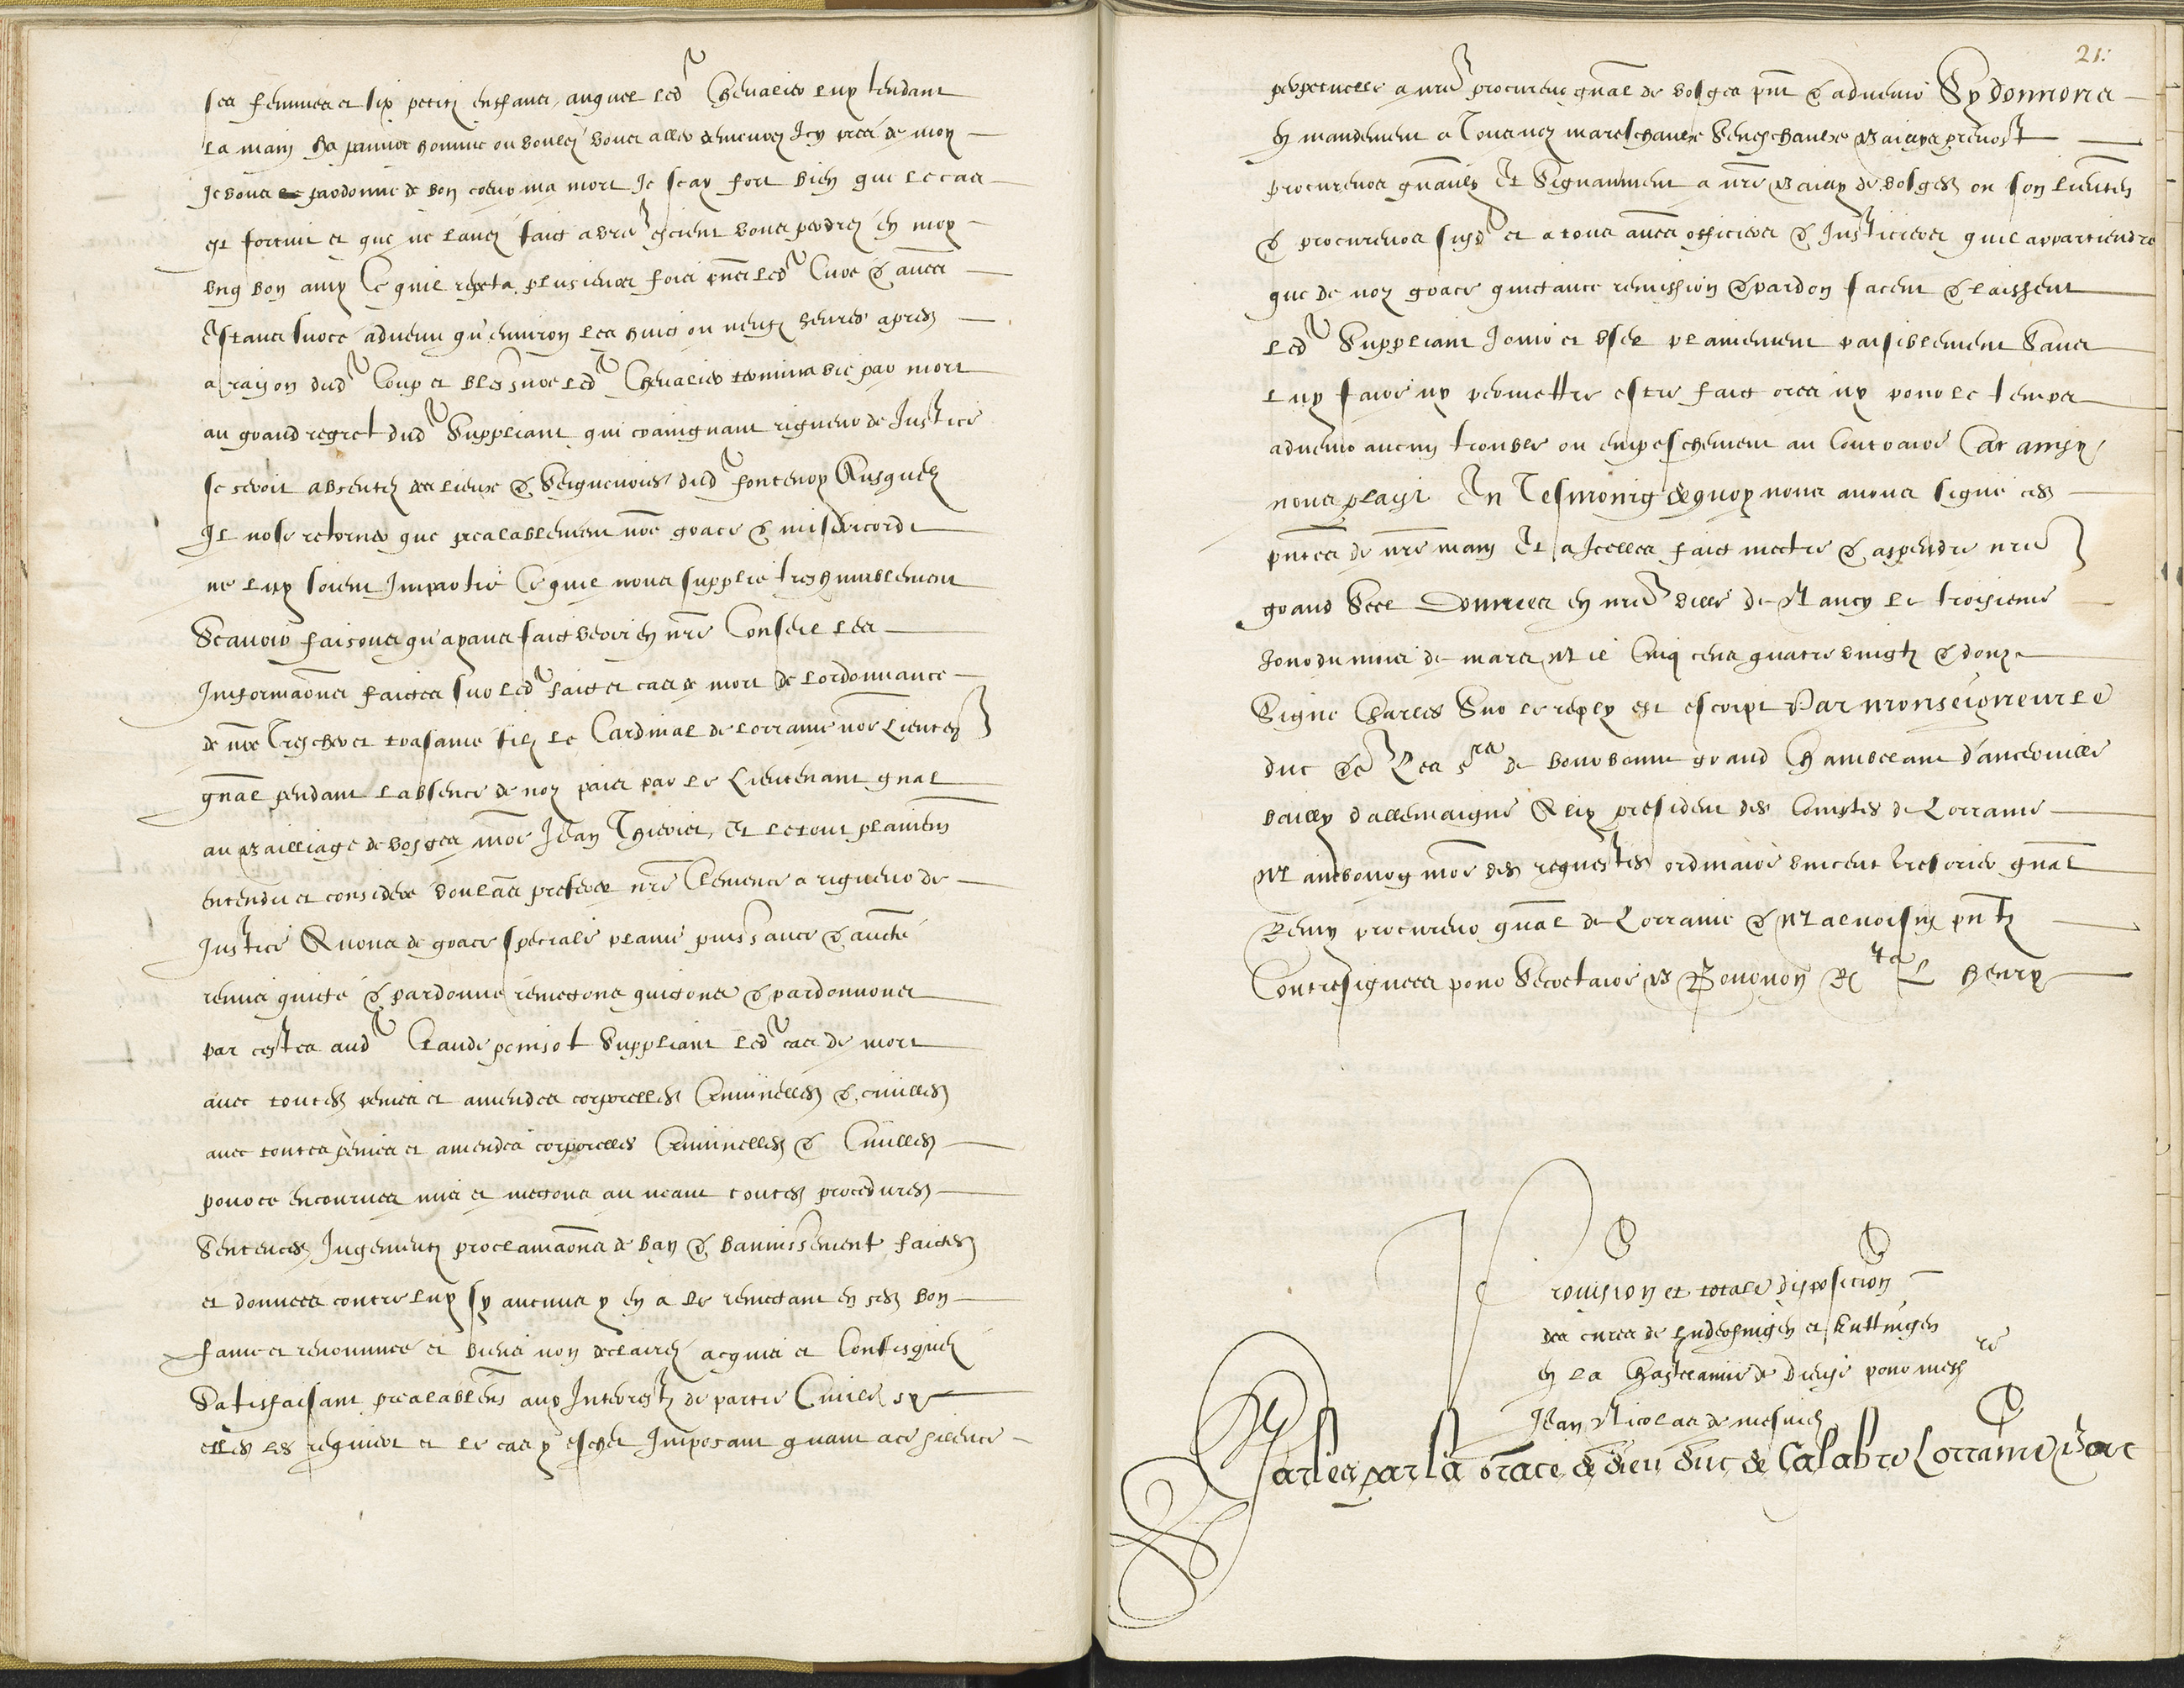 ses femmes et six petitz enffans, auquel led Chevalier luy tendant
la main ha pauvre homme ou voulez vous aller demeurez Icy pres de moy
Je vous pardonne de bon coeur ma mort Je scay fort bien que le cas
est fortuit et que ne lavez faict a vre escient vous perdrez en moy
ung bon amy Ce quil repeta plusieurs fois pntz led Curé & aues
Estans sur ce advenu qu'environ les huict ou neufz heures apres
a raison dud Coup et blessure led Chevalier termina vie par mort
au grand regret dud Suppliant qui craingnant rigueur de Justice
se seroit absentez des lieux & Seigneuries dud fontenoy Ausquelz
Il nose retorner que prealablement nre grace & misericorde
ne luy soient Impartie Ce quil nous supplie treshumblement
Scavoir faisons qu'ayans faict veoir en nre Conseil les
Informaons faictes sur led faict et cas de mort de lordonnance
de nre Trescher et tresame filz le Cardinal de Lorraine nre Lieuten
gnal pendant labsence de noz pais par le Lieutenant gnal
au Bailliage de vosges mre Jean Thierier, Et le tout plainem
entendu et considere voulans preferer nre Clemence a rigueur de
Justice Avons de grace speciale plaine puissance & aucte
remis quicté & pardonne remectons quictons & pardonnons
par cestes aud Claude poinsot Suppliant led cas de mort
avec toutes peines et amendes corporelles Criminelles & civilles
avec toutes peines et amendes corporelles Criminelles & Civilles
pour ce encourues mis et mectons au neant toutes procedures
Sentences Jugementz proclamaons de ban & bannissement faictes
et donnees contre luy sy aucunes y en a le remectant en ses bon
fame et renommee et biens non declairez acquis et Confisquez
Satisfaisant prealablem aux Interestz de partie Civile sy
elles les requiert et le cas y eschet Imposant quant a ce silence
21.
perpetuelle a nre procureur gnal de vosges pnt & advenir Sy donnons
en mandement a Tous noz mareschaulx Seneschaulx Baillyz prevost
procureurs gnaulx Et Signamment a nre Bailly de vosges ou son lieuten
& procureurs susd et a tous aues officiers & Justiciers quil appartiendra
que de noz grace quictance remission & pardon facent & laissent
led Suppliant Jouir et user plainement paisiblement Sans
luy faire ny permettre estre faict ores ny pour le temps
advenir aucun trouble ou empeschement au Contraire Car ainsy
nous plaist En Tesmoing de quoy nous avons signe ces
pntes de nre main Et a Icelles faict mectre & appendre nre
grand Seel Donnees en nre ville de Nancy le troisieme
Jour du mois de mars Mil Cinq cens quatre vingtz & donze
Signe Charles Sur le reply est escript Par monseigneur le
duc &c Les srs de bourbonne grand Chambellant d'ancerville
bailly d'allemaigne Alix president des Comptes de Lorraine
Maimbourg mre des requestes ordinaire vincent Tresorier gnal
Remy procureur gnal de Lorraine & Malvoisin pntz
Contresignees pour Secretaire M Bounon Rta L henry
Provision et totale disposition
des cures de Luderfingen et Kuttingen
en la Chastelainie de Dieuse pour mess re
Jean Nicolas de mesnilz
Charles par la grace de dieu duc de Calabre Lorraine Bar